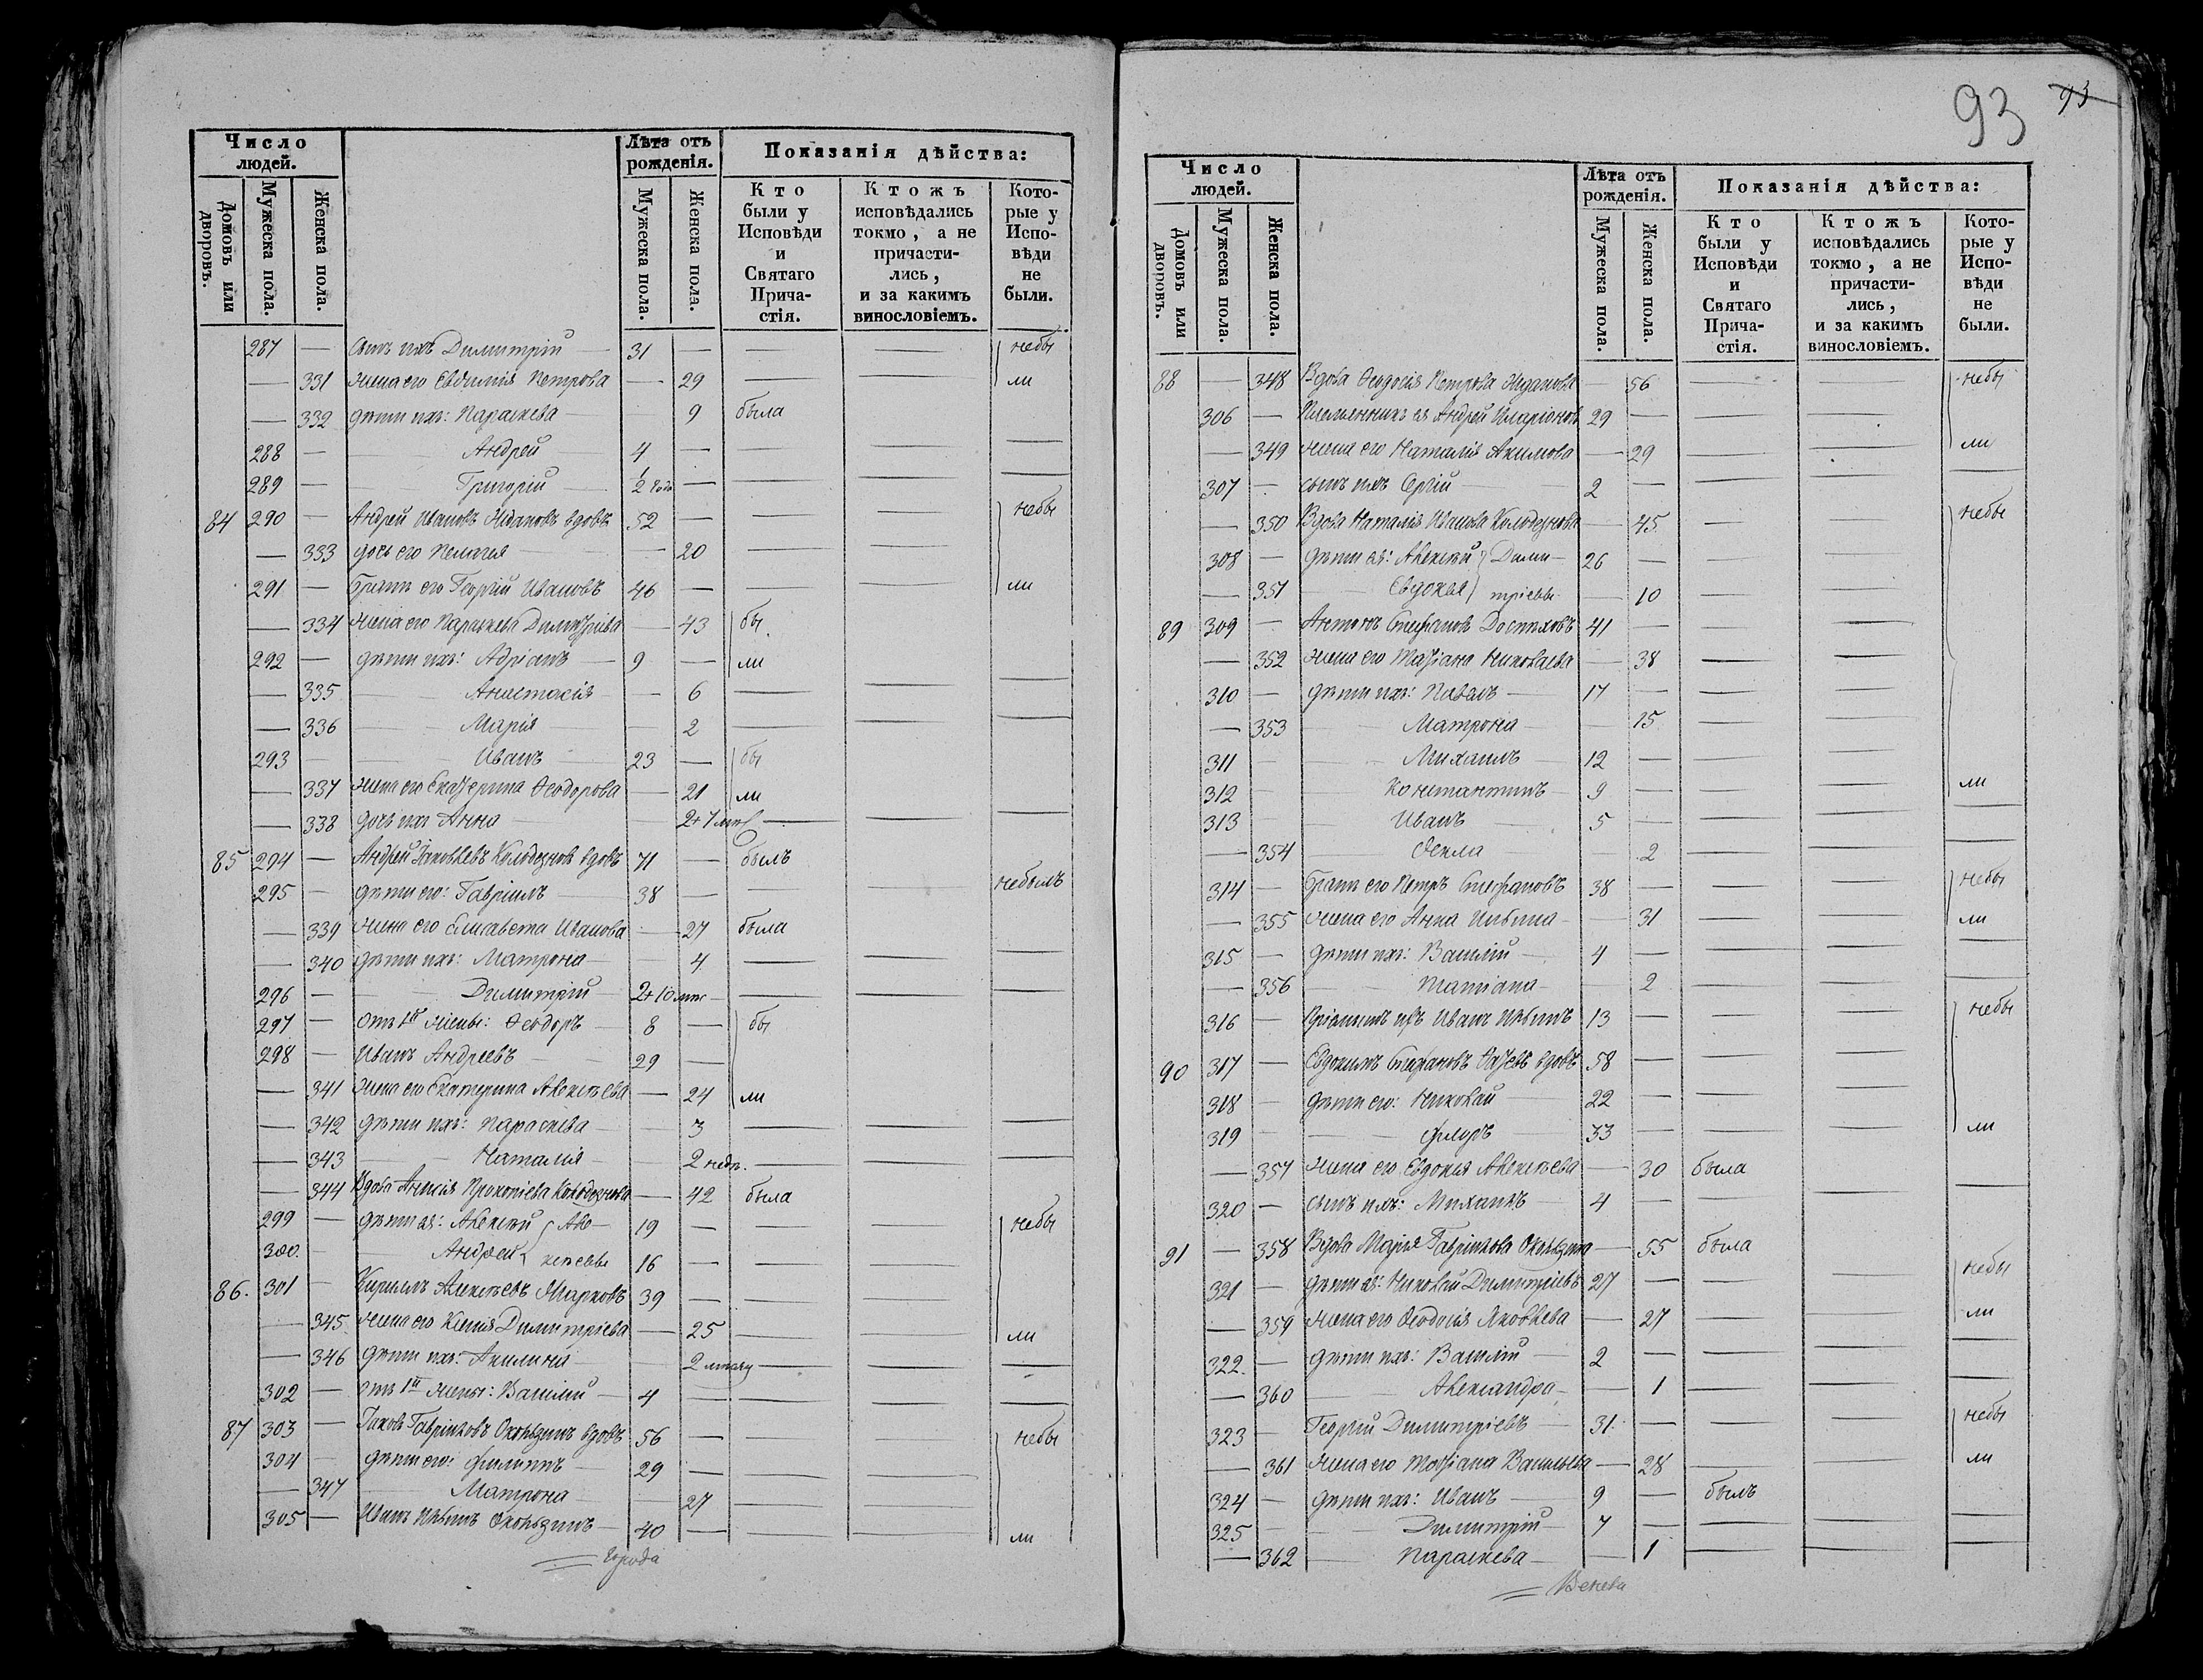 Число людей.
Лѣта отъ рожденія.
Показанія дѣйства:
Домовъ или дворовъ.
Мужеска пола.
Женска пола.
Мужеска пола.
Женска пола.
Кто были у Исповѣди и Святаго Прича-стія.
Ктожъ исповѣдались токмо, а не причасти-лись, и за какимъ винословіемъ.
Кото-рые у Испо-вѣди не были.
287 — сынъ ихъ Димитрій — 31 — — — небы
— 331 жена его Евдокія Петрова — 29 — — ли
— 332 дѣти ихъ: Параскева — 9 была
288 — Андрей — 4 — — — —
289 — Григорій — ½ года — — — —
84 290 — Андрей Ивановъ вдовъ 52 — — — небы
— 333 дочь его Пелагея — 20 — —
291 — братъ его Георгій Ивановъ 46 — — — ли
— 334 жена его Параскева Димитріева — 43 бы
292 — дѣти ихъ: Адріанъ — 9 — ли
— 335 — Анастасія — 6 — — —
— 336 — Марія — 2 — — —
293 — Иванъ — 23 — бы
— 337 жена его Екатерина Ѳеодорова — 21 ли
— 338 дочь ихъ Анна — — —
85 294 — Андрей Іаковлевъ Колодезновъ вдовъ 71 — былъ
295 — дѣти его: Гавріилъ — 38 — — — небылъ
— 339 жена его Елисавета Иванова — 27 была
— 340 дѣти ихъ: Матрона — 4 — — —
296 — Димитрій — — — —
297 — отъ 1й жены: Ѳеодоръ — 8 — бы
298 — Иванъ Андреевъ — 29 —
— 341 жена его Екатерина Алексѣева — 24 ли
— 342 дѣти ихъ: Параскева — 3 — — —
— 343 — Наталія — 2 недѣ. — — —
— 344 Вдова Анисія Прокопіева Колодезнова — 42 была
299 — дѣти ея: Алексѣй } Але- 19 — — — небы
300. — Андрей } ксѣевы 16 — — —
86. 301 — Кириллъ Алексѣевъ Марковъ 39 — — —
— 345 жена его Ксенія Димитріева — 25 — — ли
— 346 дѣти ихъ: Акилина — 2 — — —
302 — отъ 1й жены: Василій — 4 — — — —
87 303 — Іаковъ Гавриловъ вдовъ 56 — — — небы
304 — дѣти его: Филиппъ — 29 — — —
— 347 — Матрона — 27 — —
305 — Иванъ Ильинъ — 40 — — — ли
города
93
93
Число людей.
Лѣта отъ рожденія.
Показанія дѣйства:
Домовъ или дворовъ.
Мужеска пола.
Женска пола.
Мужеска пола.
Женска пола.
Кто были у Исповѣди и Святаго Прича-стія.
Ктожъ исповѣдались токмо, а не причасти-лись, и за какимъ винословіемъ.
Кото-рые у Испо-вѣди не были.
88 — 348 Вдова Ѳеодосія Петрова — 56 — — небы
306 — Племянникъ ея Андрей Иларіоновъ 29 — — —
— 349 жена его Наталія Акимова — 29 — — ли
307 — сынъ ихъ Сергій — 2 — — — —
— 350 Вдова Наталія Иванова Колодезнова — 45 — — небы
308 — дѣти ея: Алексѣй } Дими- 26 — — —
— 351 — Евдокія } тріевы — 10 — —
89 309 — Антонъ Стефановъ Доспѣховъ 41 — — —
— 352 жена его Татіана Николаева — 38 — —
310 — дѣти ихъ: Павелъ — 17 — — —
— 353 — Матрона — 15 — —
311 — Михаилъ — 12 — — —
312 — Константинъ — 9 — — — ли
313 — Иванъ — 5 — — — —
— 354 — Ѳекла — 2 — — —
314 — братъ его Петръ Стефановъ 38 — — — небы
— 355 жена его Анна Ильина — 31 — — ли
315 — дѣти ихъ: Василій — 4 — — — —
— 356 — Татіана — 2 — — —
316 — Иванъ Ильинъ 13 — — — небы
90 317 — Евдокимъ Стефановъ вдовъ 58 — — —
318 — дѣти его: Николай — 22 — — —
319 — Флоръ — 33 — — — ли
— 357 жена его Евдокія Алексѣева — 30 была
320 — сынъ ихъ: Михаилъ — 4 — — — —
91 — 358 Вдова Марія Гаврилова — 55 была
321 — дѣти ея: Николай Димитріевъ 27 — — — небы
— 359 жена его Ѳеодосія Яковлева — 27 — — ли
322. — дѣти ихъ: Василій — 2 — — — —
— 360 — Александра — 1 — — —
323 — Георгій Димитріевъ — 31 — — — небы
— 361 жена его Татіана Васильева — 28 — — ли
324 — дѣти ихъ: Иванъ — 9 — былъ
325 — Димитрій — 7 — — — —
— 362 — Параскева — 1 — — —
Венева